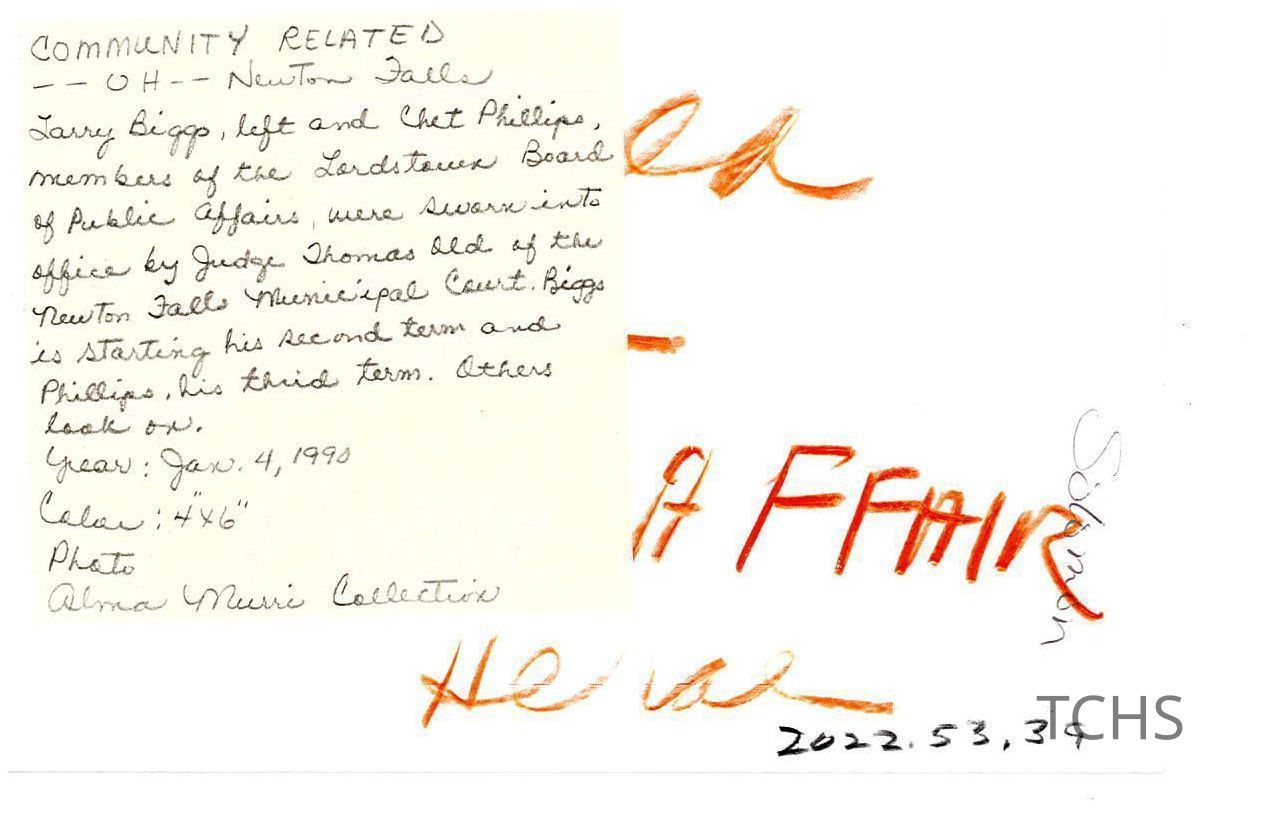 COMMUNITY RELATED
-- OH -- Newton Falls
Larry Biggs, left and Chet Phillips,
members of the Lordstown Board
of Public Affairs, were sworn into
office by Judge Thomas Old of the
Newton Falls Municipal Court. Biggs
is starting his second term and
Phillips, his third term. Others
look on.
Year: Jan. 4, 1990
Color: 4"x6"
Photo
Alma Murri Collection
A FFAIR
2022.53.39
TCHS